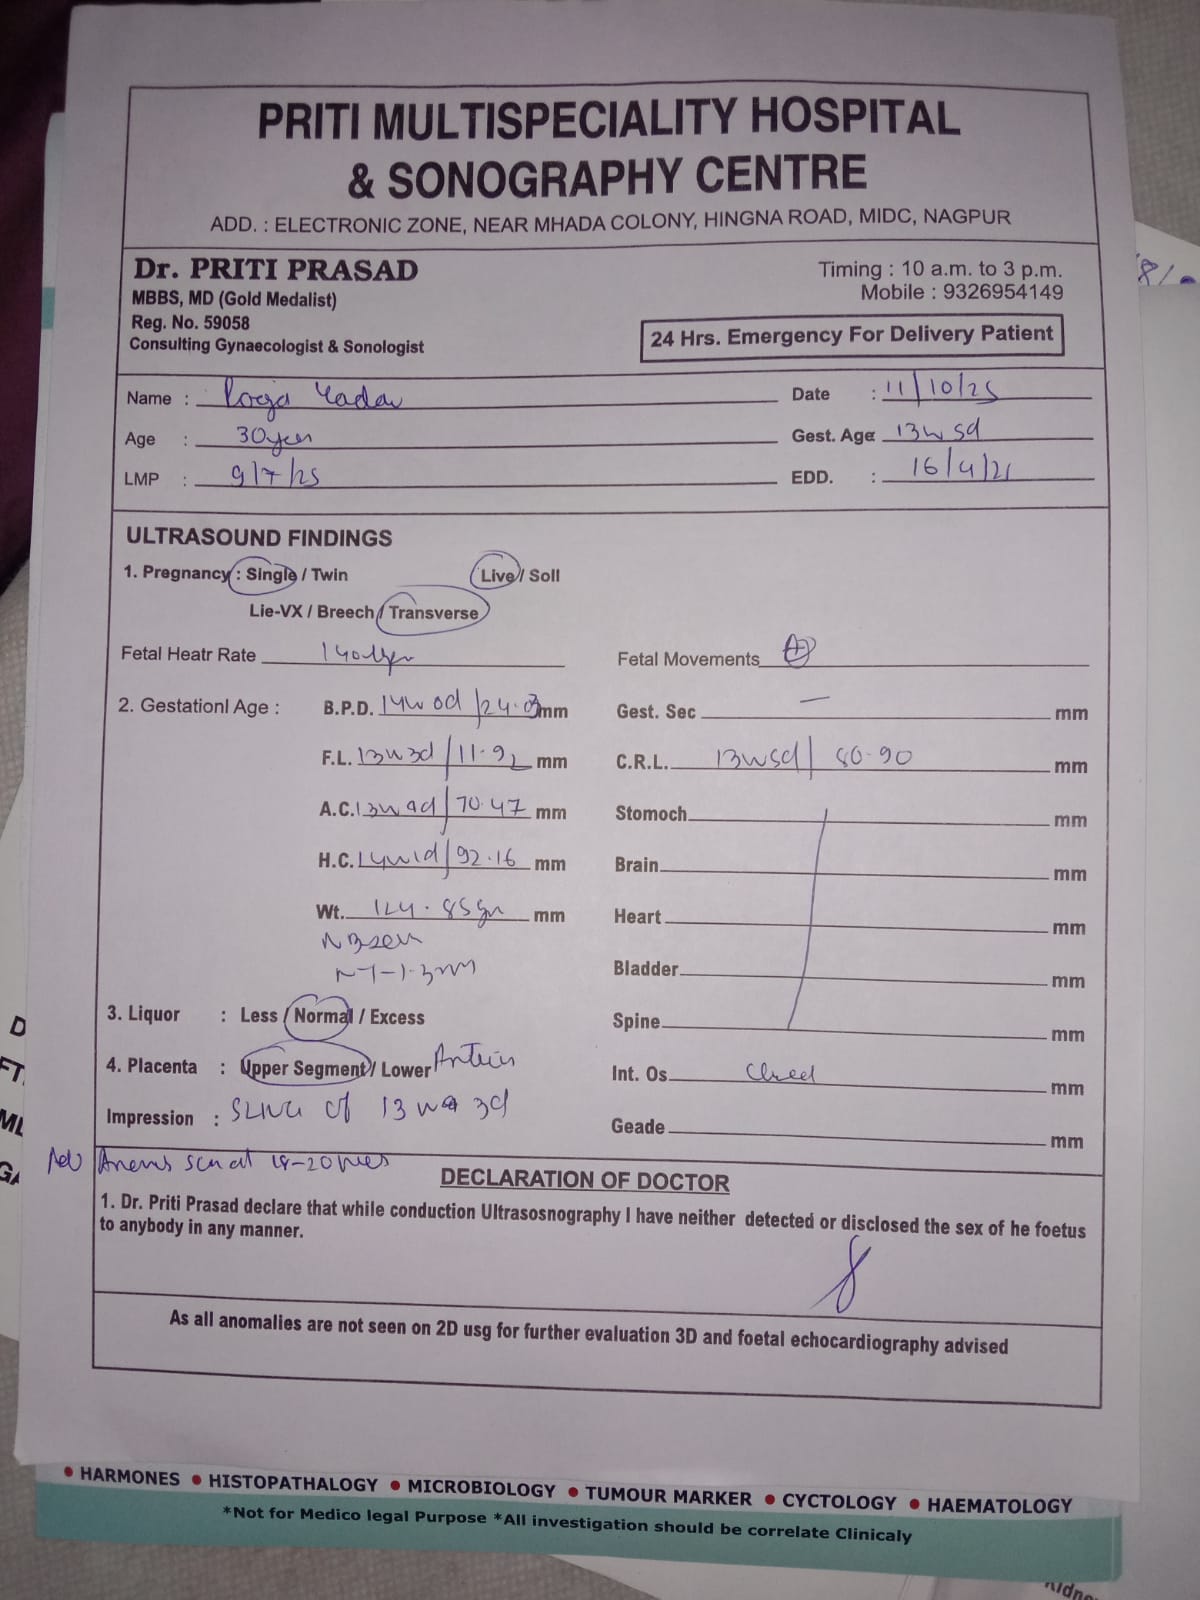 PRITI MULTISPECIALITY HOSPITAL
& SONOGRAPHY CENTRE
ADD. : ELECTRONIC ZONE, NEAR MHADA COLONY, HINGNA ROAD, MIDC, NAGPUR
Dr. PRITI PRASAD
MBBS, MD (Gold Medalist)
Reg. No. 59058
Consulting Gynaecologist & Sonologist
Timing : 10 a.m. to 3 p.m.
Mobile : 9326954149
24 Hrs. Emergency For Delivery Patient
Name : Pooja Yadav
Date : 11/10/25
Age : 30year
Gest. Age : 13w 5d
LMP : 9/7/25
EDD. : 16/4/26
ULTRASOUND FINDINGS
1. Pregnancy : Single / Twin Live / Soll
Lie-VX / Breech / Transverse
Fetal Heatr Rate 140
Fetal Movements +
2. Gestationl Age : B.P.D. 14w 0d / 24.03 mm
Gest. Sec — mm
F.L. 13w3d / 11.92 mm
C.R.L. 13w5d / 80.90 mm
A.C. 13w 9d / 70.47 mm
Stomoch mm
H.C. 14w1d / 92.16 mm
Brain mm
Wt. 124.85gm mm
Heart mm
NB seen
NT-1.3mm
Bladder mm
3. Liquor : Less / Normal / Excess
Spine mm
4. Placenta : Upper Segment / Lower
Int. Os. Closed mm
Impression : SLIUG of 13 w 3d
Geade mm
Adv scan at 18-20
DECLARATION OF DOCTOR
1. Dr. Priti Prasad declare that while conduction Ultrasosnography I have neither detected or disclosed the sex of he foetus
to anybody in any manner.
As all anomalies are not seen on 2D usg for further evaluation 3D and foetal echocardiography advised
• HARMONES • HISTOPATHALOGY • MICROBIOLOGY • TUMOUR MARKER • CYCTOLOGY • HAEMATOLOGY
*Not for Medico legal Purpose *All investigation should be correlate Clinicaly